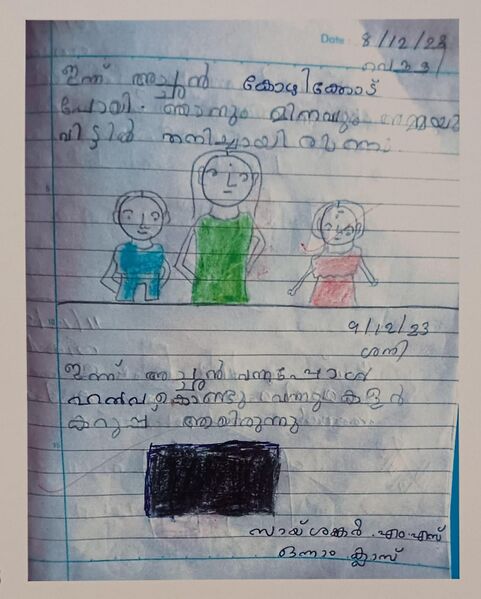 Date : 8/12/23
വെള്ളി
ഇന്ന് അച്ഛൻ കോഴിക്കോട്
പോയി. ഞാനും മിനവും അമ്മയും
വീട്ടിൽ തനിച്ചായിരുന്നു.
9/12/23
ശനി
ഇന്ന് അച്ഛൻ വന്നപ്പോൾ
ഹൽവ കൊണ്ടുവന്നു കളർ
കറുപ്പ് ആയിരുന്നു
സായ് ശങ്കർ. എം.എസ്
ഒന്നാം ക്ലാസ്